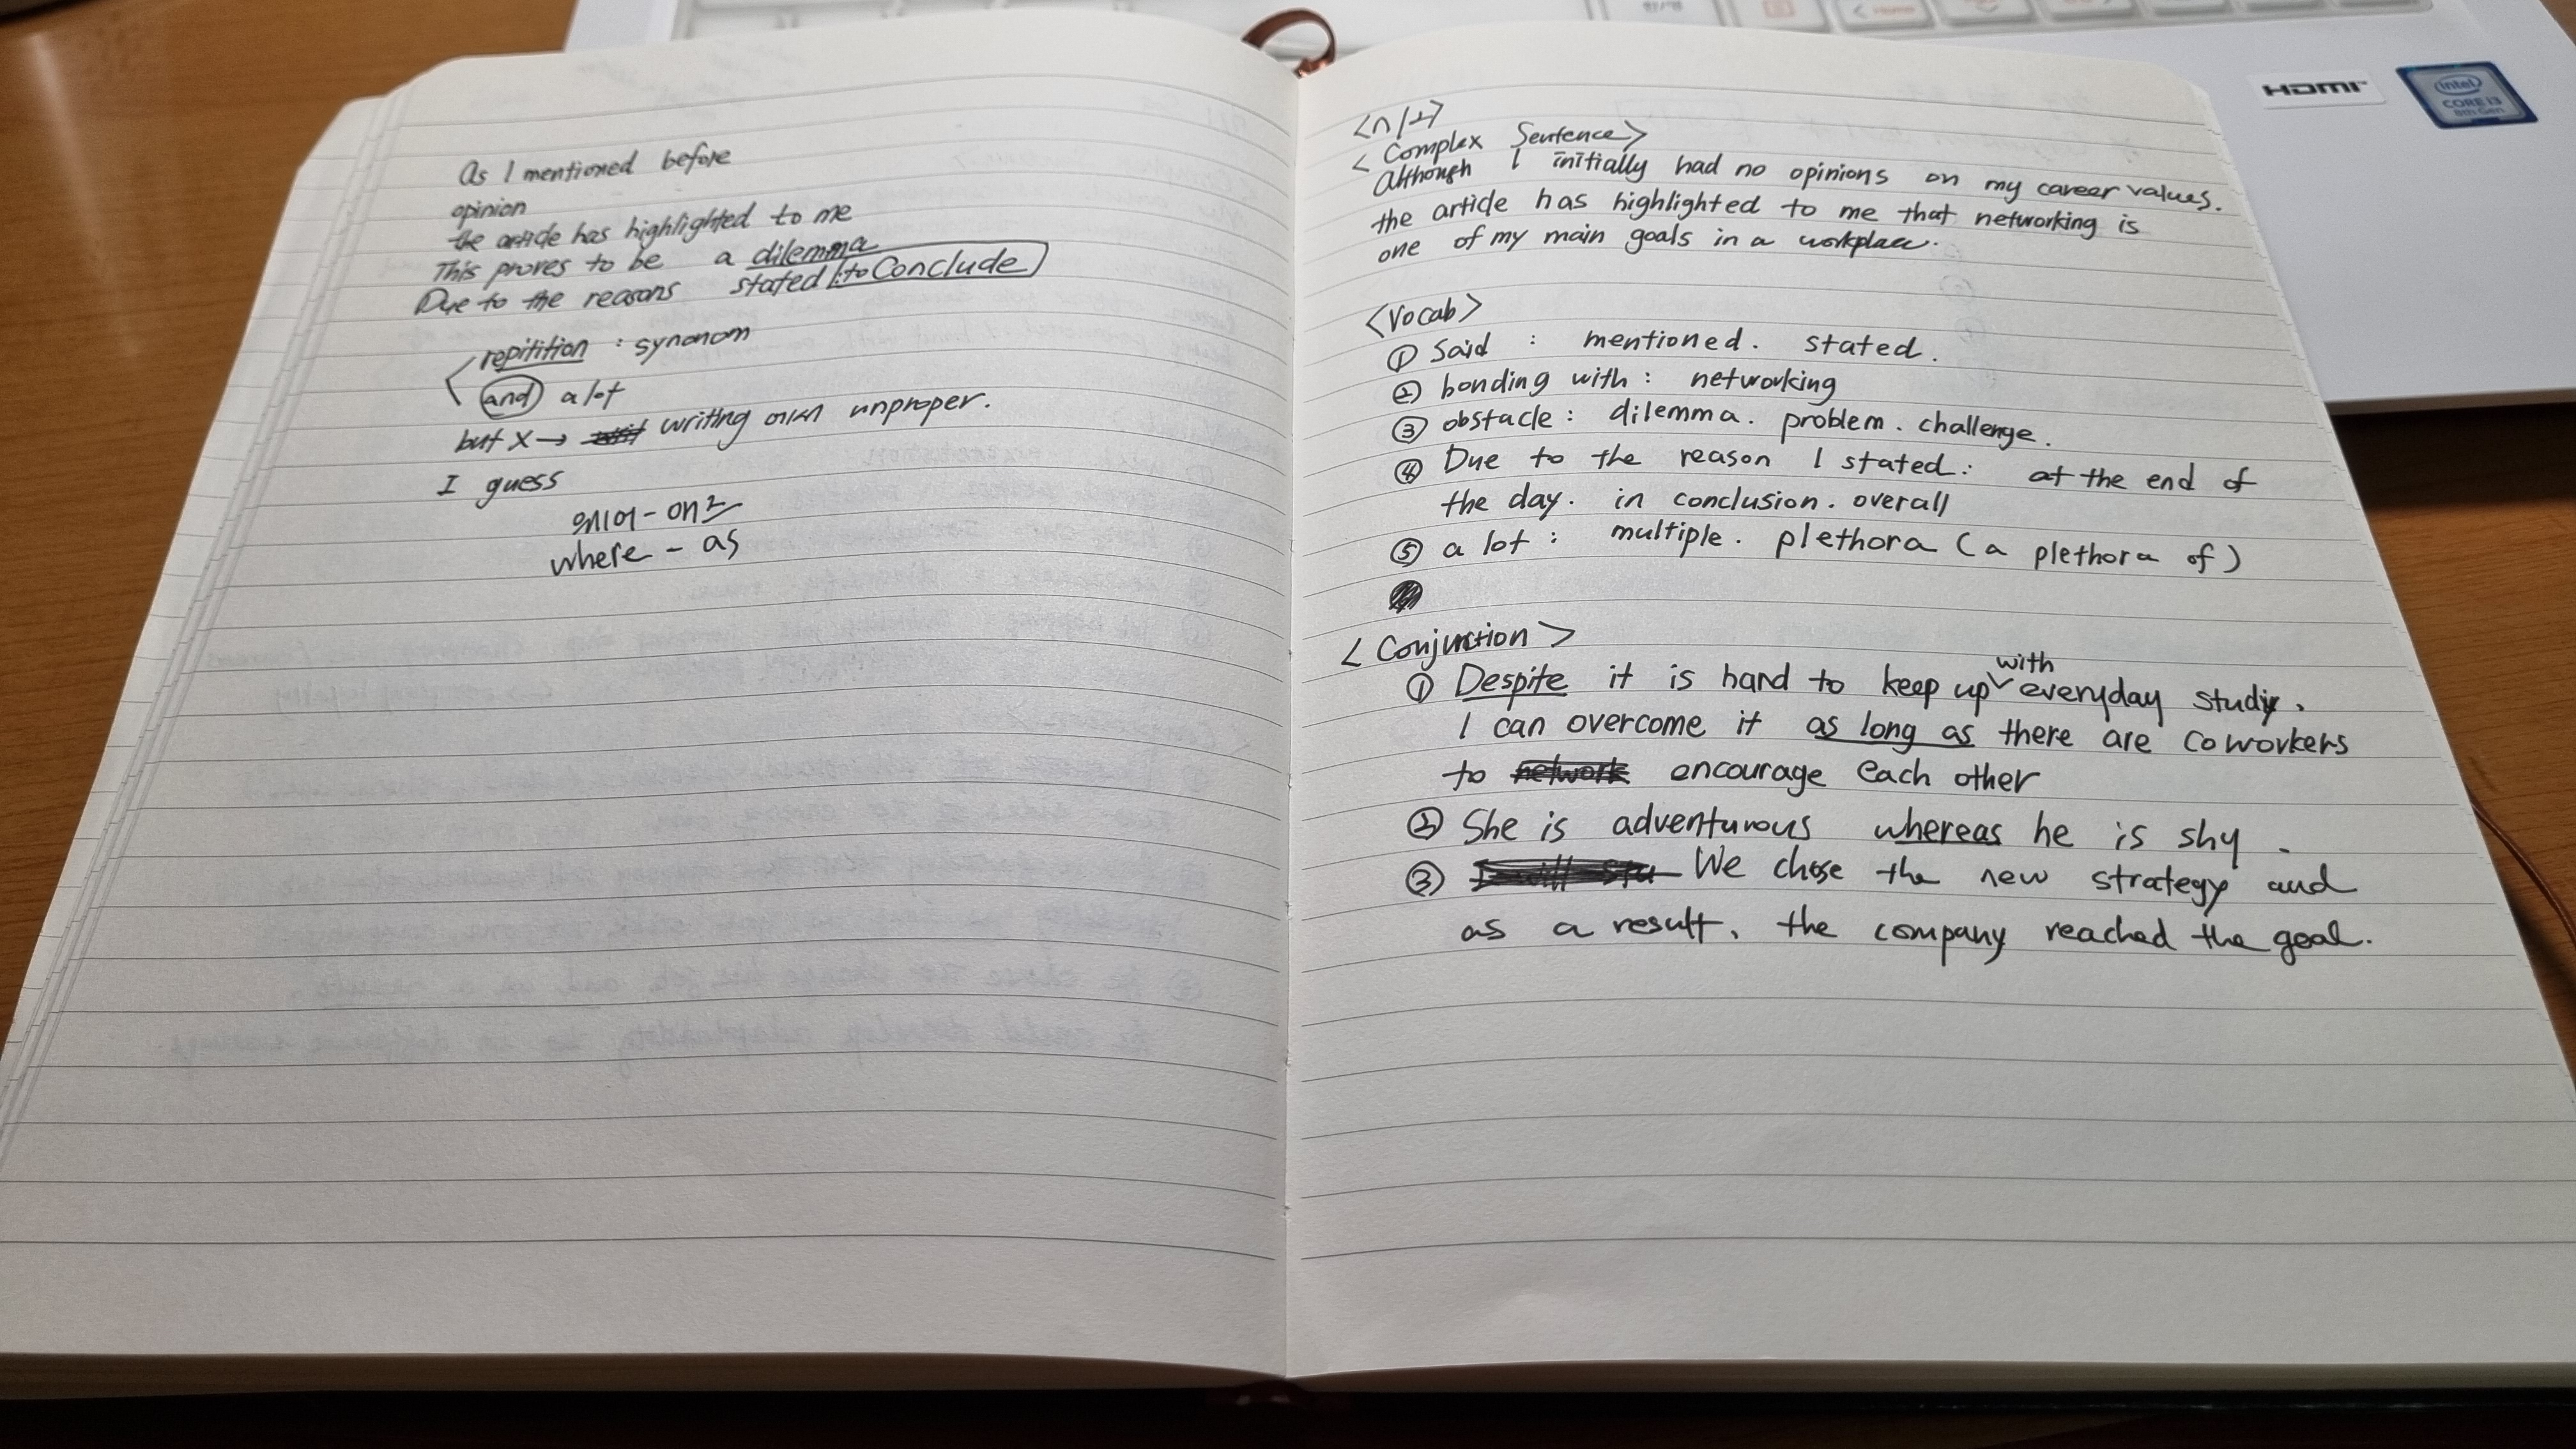 As I mentioned before
opinion
the article has highlighted to me
This proves to be a dilemma
Due to the reasons stated to Conclude
repitition : synonom
and a lot
but X → writing에서 unproper.
I guess
where - as
<Complex Sentence>
Although I initially had no opinions on my career values.
the article has highlighted to me that networking is
one of my main goals in a workplace.
<Vocab>
① Said : mentioned. stated.
② bonding with : networking
③ obstacle : dilemma. problem. challenge.
④ Due to the reason I stated : at the end of
the day. in conclusion. overall
⑤ a lot : multiple. plethora (a plethora of)
<Conjunction>
① Despite it is hard to keep up with everyday study.
I can overcome it as long as there are coworkers
to network encourage each other
② She is adventurous whereas he is shy.
③ We chose the new strategy and
as a result, the company reached the goal.
HDMI
intel
CORE i3
8th Gen